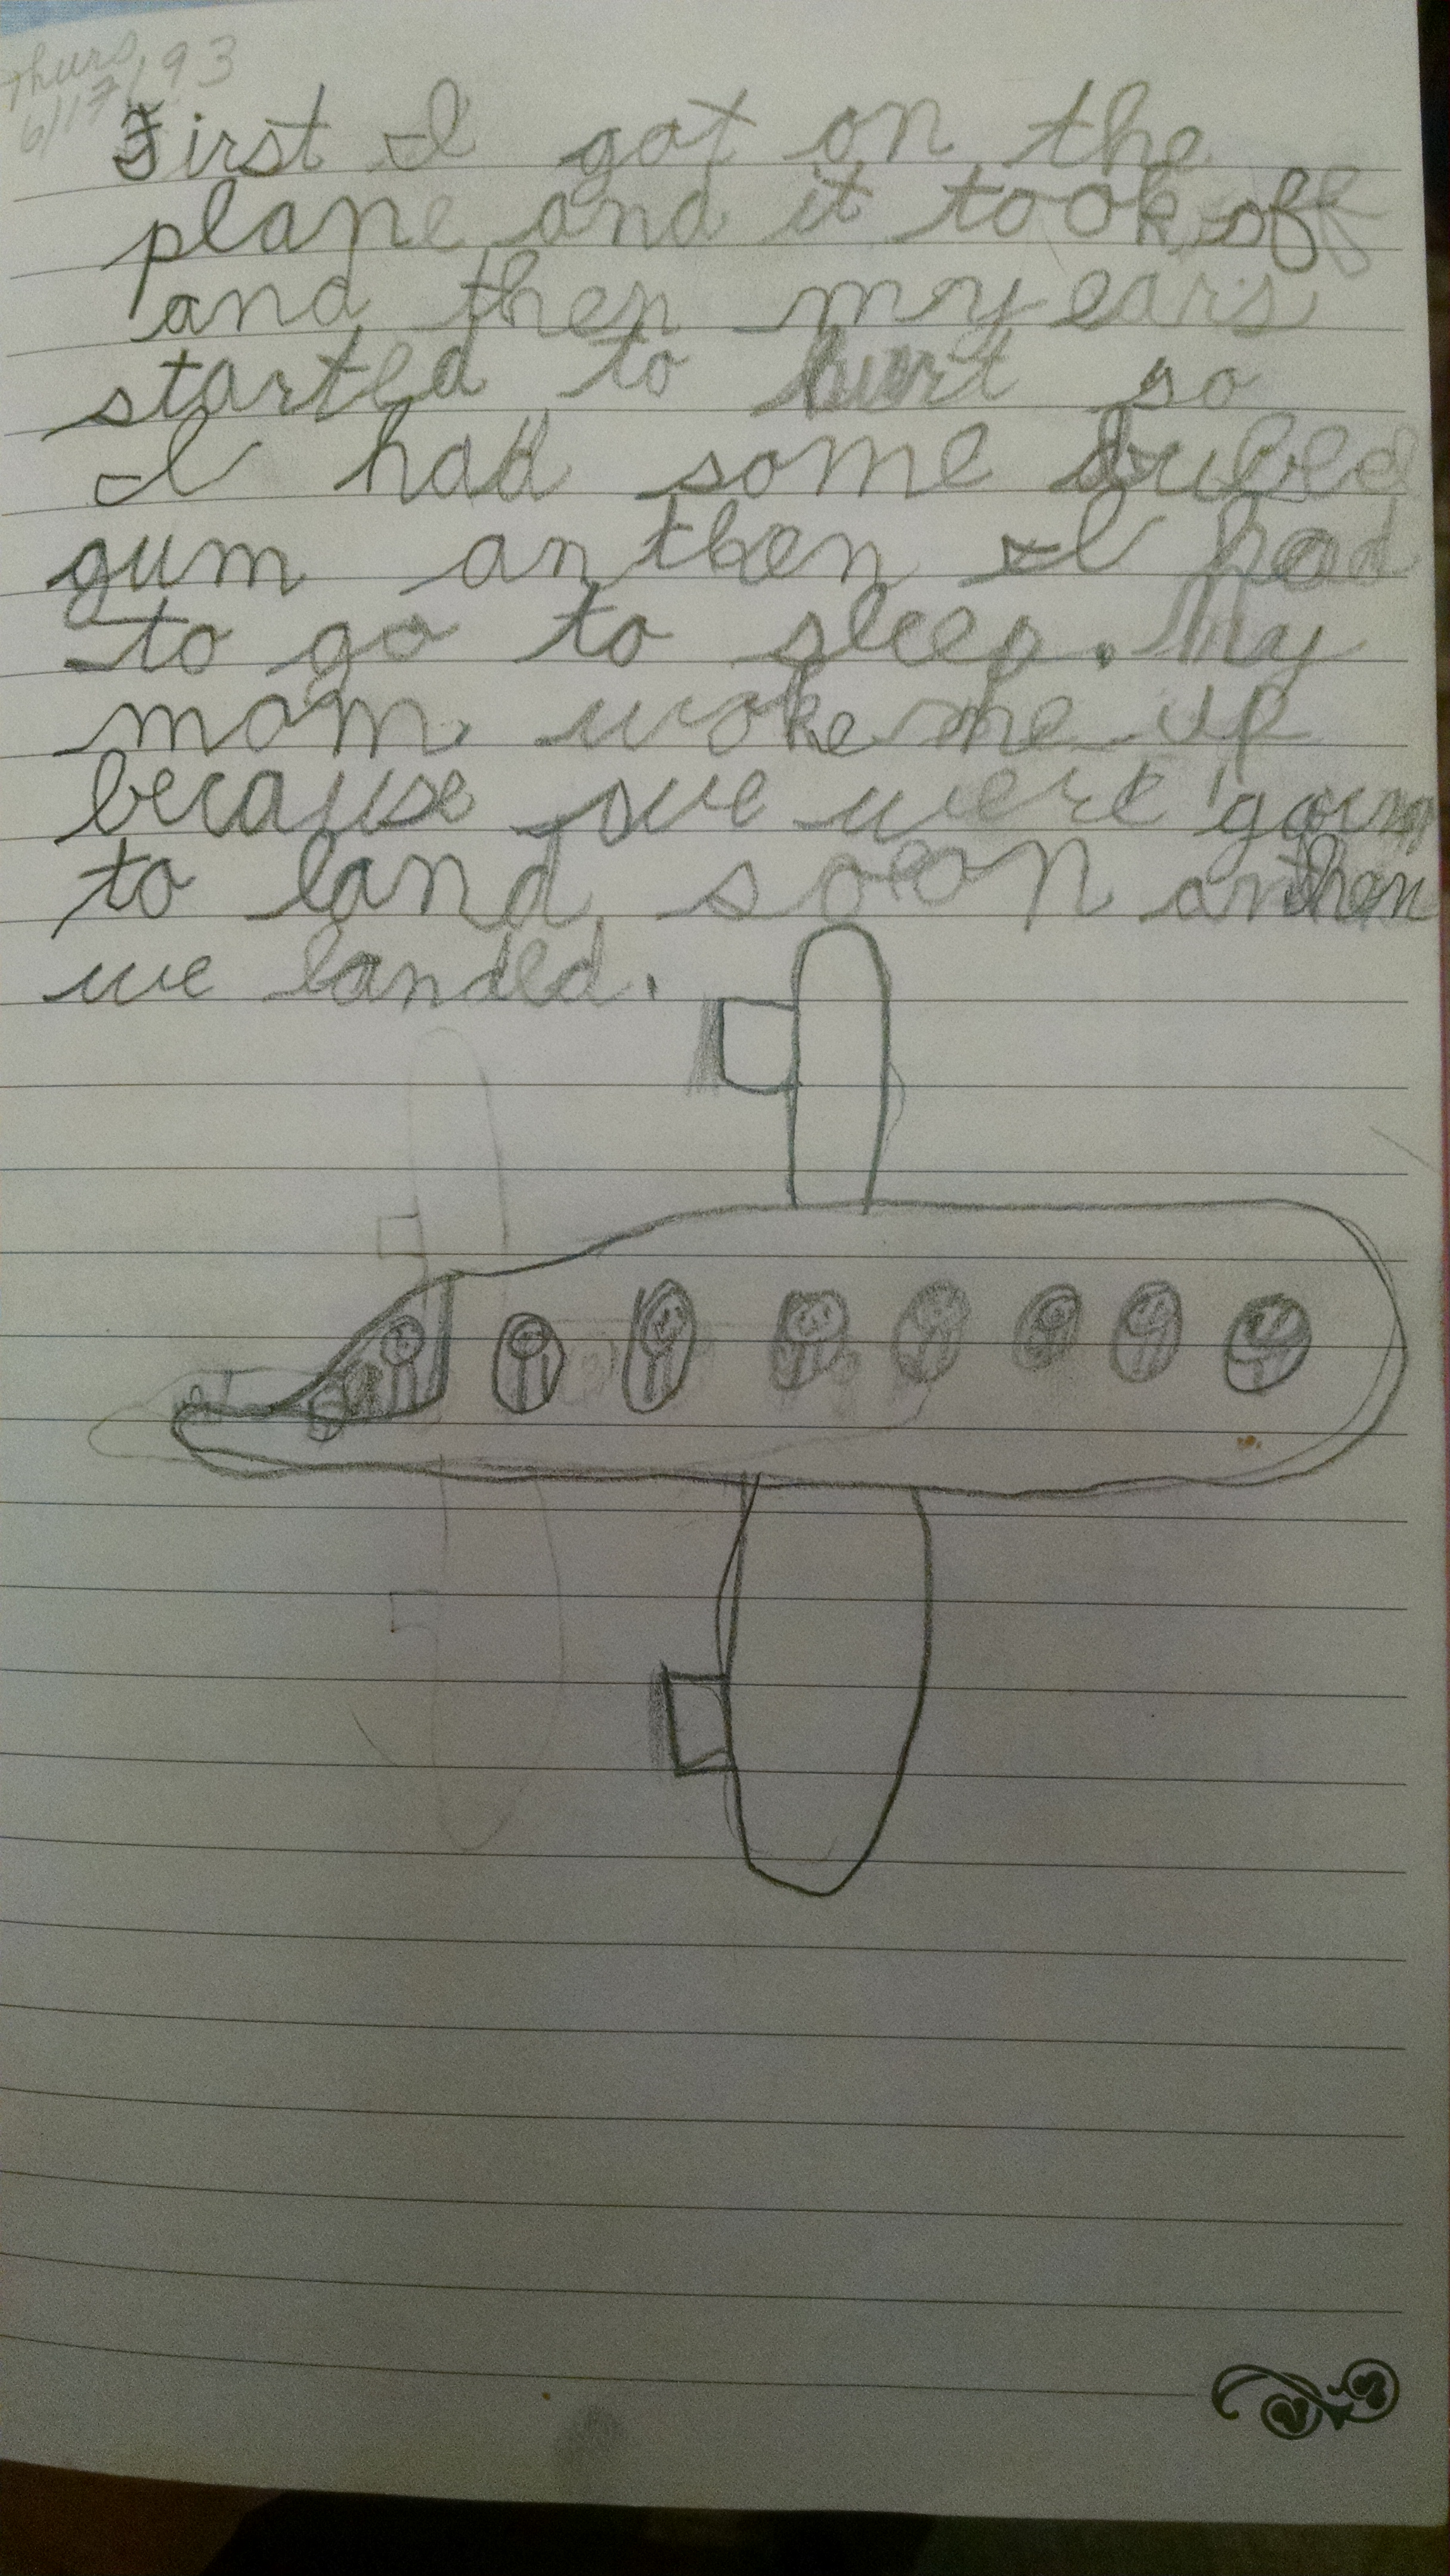 Thurs,
6/17/93
First I got on the
plane and it took off
and then my ears
started to hurt so
I had some
gum an then I had
to go to sleep. My
mom woke me up
because we were goin
to land soon an then
we landed.